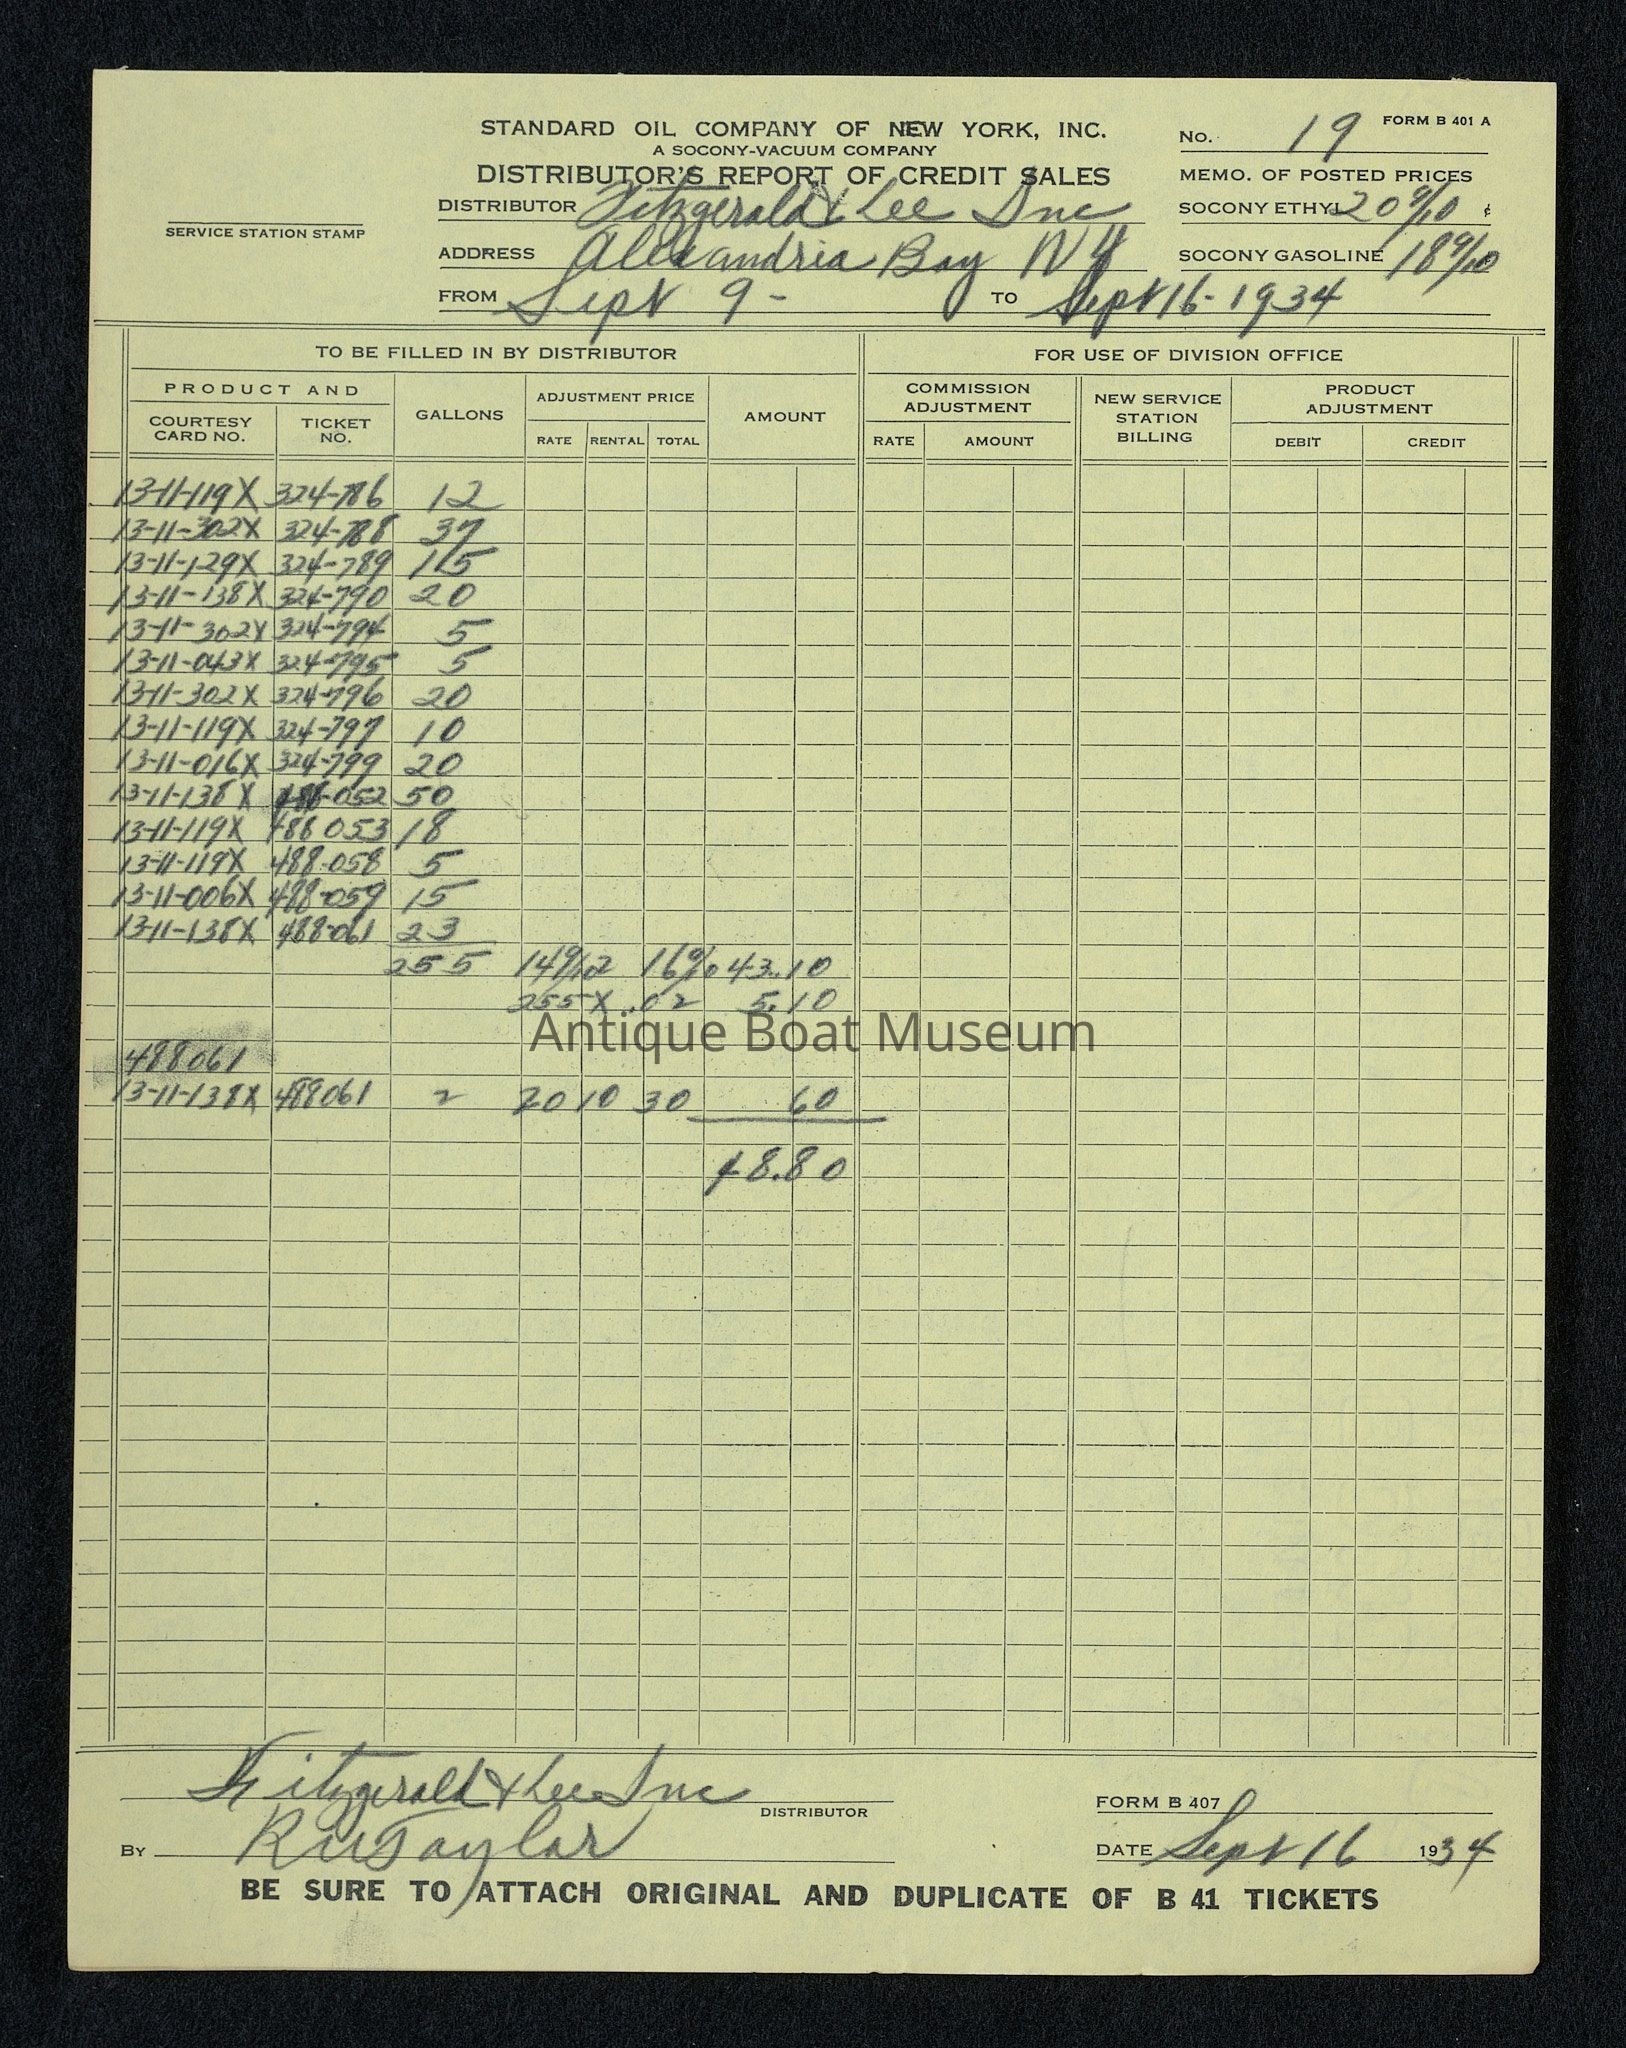 STANDARD OIL COMPANY OF NEW YORK, INC.
A SOCONY-VACUUM COMPANY
DISTRIBUTOR'S REPORT OF CREDIT SALES
No. 19 FORM B 401 A
MEMO. OF POSTED PRICES
SERVICE STATION STAMP
DISTRIBUTOR Fitzgerald & Lee Inc
SOCONY ETHYL 20 9/10 ¢
ADDRESS Alexandria Bay NY
SOCONY GASOLINE 18 9/10
FROM Sept 9- TO Sept 16-1934
TO BE FILLED IN BY DISTRIBUTOR FOR USE OF DIVISION OFFICE
PRODUCT AND
COURTESY CARD NO. TICKET NO. GALLONS ADJUSTMENT PRICE RATE RENTAL TOTAL AMOUNT COMMISSION ADJUSTMENT RATE AMOUNT NEW SERVICE STATION BILLING PRODUCT ADJUSTMENT DEBIT CREDIT
13-11-119X 324-786 12
13-11-302X 324-788 37
13-11-129X 324-789 15
13-11-138X 324-790 20
13-11-302X 324-794 5
13-11-043X 324-795 5
13-11-302X 324-796 20
13-11-119X 324-797 10
13-11-016X 324-799 20
13-11-138X 488-052 50
13-11-119X 488053 18
13-11-119X 488-058 5
13-11-006X 488-059 15
13-11-138X 488-061 23
255 14 9/10 2 16 9/10 43.10
255 X .02 5.10
Antique Boat Museum
488061
13-11-138X 488061 2 20 10 30 60
48.80
Fitzgerald & Lee Inc
DISTRIBUTOR
FORM B 407
By Taylor
DATE Sept 16 1934
BE SURE TO ATTACH ORIGINAL AND DUPLICATE OF B 41 TICKETS